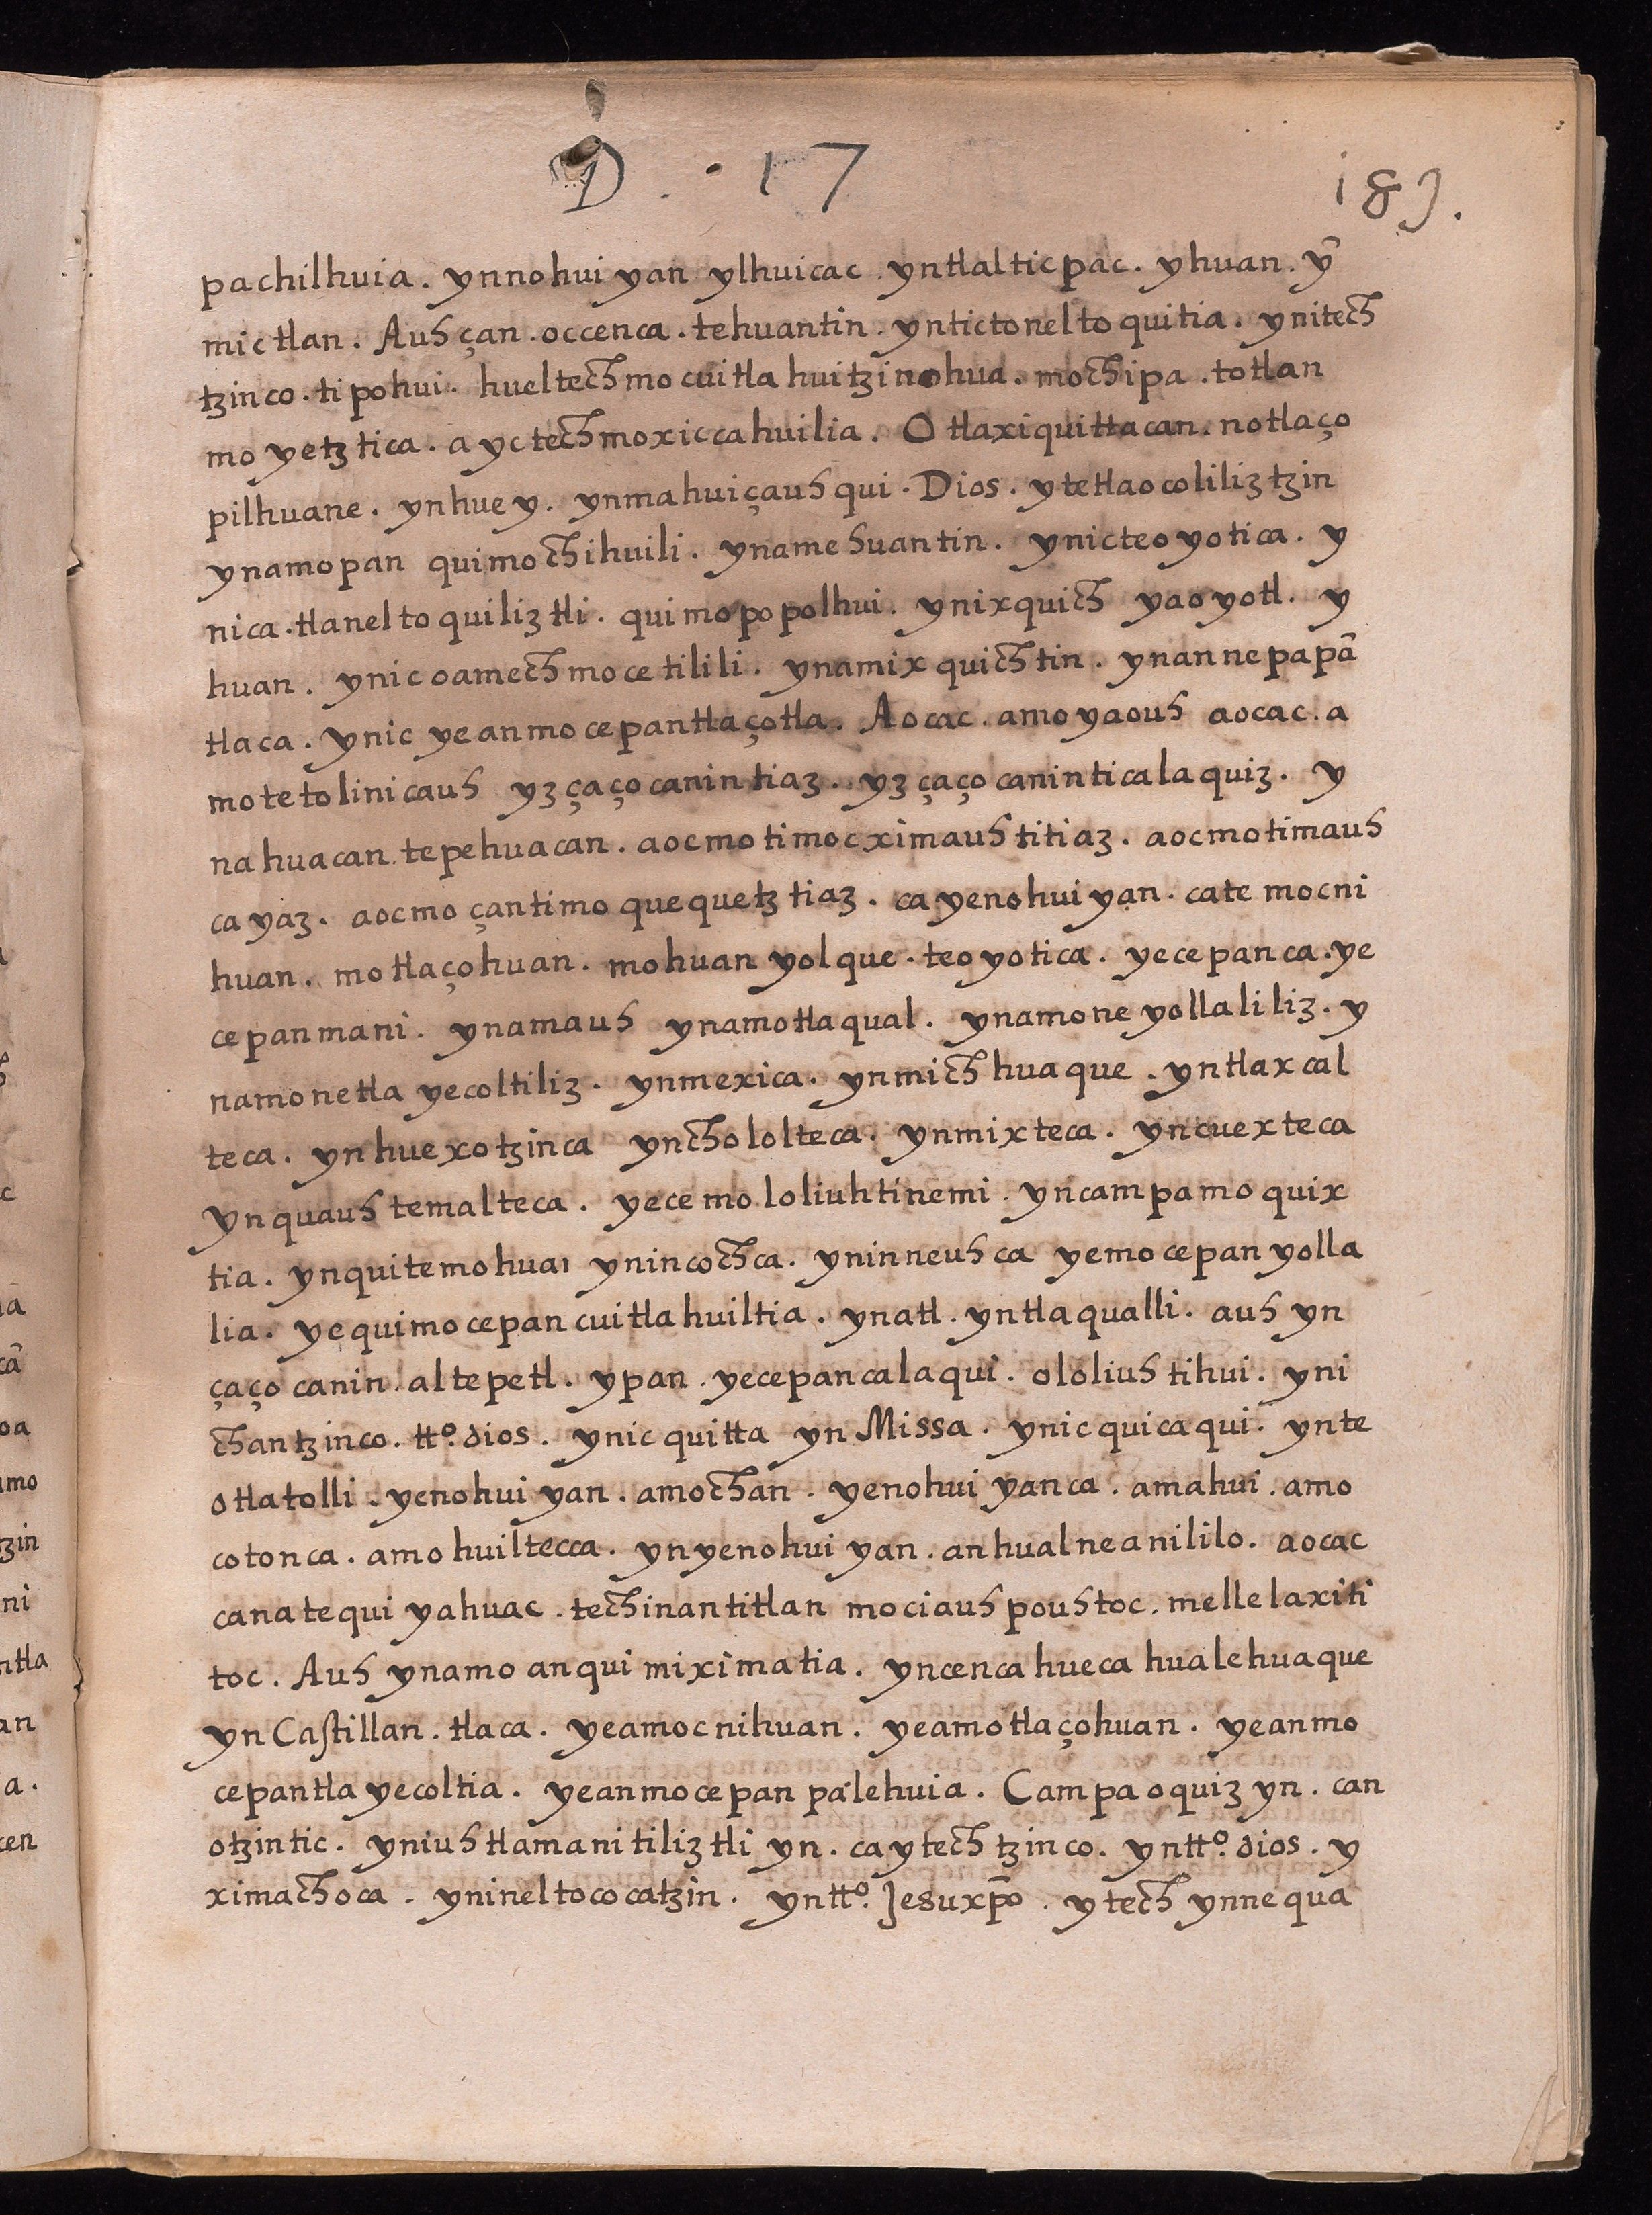 D . · 17
189.
pachilhuia. ynnohuiyan ylhuicac. yntlalticpac. yhuan. yn̄
mictlan. Auh çan. occenca. tehuantin. yntictoneltoquitia. ynitech
tzinco. tipohui. hueltechmocuitlahuitzinohua. mochipa. totlan
moyetztica. ayctechmoxiccahuilia. O tlaxiquittacan. notlaço
pilhuane. ynhuey. ynmahuiçauhqui. Dios. ytetlaocoliliztzin
ynamopan quimochihuili. ynamehuantin. ynicteoyotica. y
nica. tlaneltoquiliztli. quimopopolhui. ynixquich yaoyotl. y
huan. ynicoamechmocetilili. ynamixquichtin. ynannepapā
tlaca. ynic yeanmocepantlaçotla. Aocac. amoyaouh aocac. a
motetolinicauh yz çaço canin tiaz. yz çaço canin ticalaquiz. y
nahuacan. tepehuacan. aocmo timocximauhtitiaz. aocmo timauh
cayaz. aocmo çan timoquequetztiaz. ca yenohuiyan. cate mocni
huan. motlaçohuan. mohuanyolque. teoyotica. yecepanca. ye
cepanmani. ynamauh ynamotlaqual. ynamoneyollaliliz. y
namonetlayecoltiliz. ynmexica. ynmichhuaque. yntlaxcal
teca. ynhuexotzinca ynchololteca. ynmixteca. yncuexteca
ynquauhtemalteca. yecemololiuhtinemi. yncampamoquix
tia. ynquitemohuaı ynincochca. yninneuhca yemocepanyolla
lia. yequimocepancuitlahuiltia. ynatl. yntlaqualli. auh yn
çaço canin. altepetl. ypan. yecepancalaqui. ololiuhtihui. yni
chantzinco. tt.º dios. ynic quitta yn Missa. ynic quicaqui. ynte
otlatolli. yenohuiyan. amochan. yenohuiyanca. amahui. amo
cotonca. amohuiltecca. ynyenohuiyan. anhualneanililo. aocac
canatequiyahuac. techinantitlan mociauhpouhtoc. mellelaxiti
toc. Auh ynamo anquimiximatia. yncenca hueca hualehuaque
yn Castillan. tlaca. yeamocnihuan. yeamotlaçohuan. yeanmo
cepantlayecoltia. yeanmocepanpalehuia. Campa oquiz yn. can
otzintic. yniuh tlamanitiliztli yn. ca ytechtzinco. yntt.º dios. y
ximachoca. ynineltococatzin. yntt.º Jesuxp̄o. ytech ynnequa